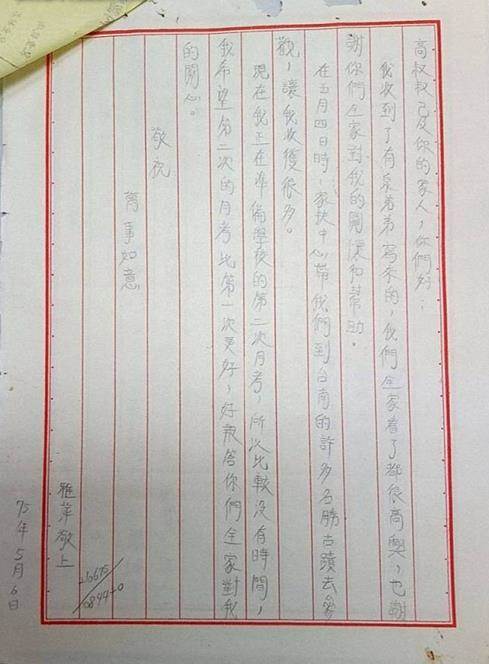 高叔叔及你的家人，你們好：
我收到了有泉弟弟寫來的，我們全家看了都很高興，也謝
謝你們全家對我的關懷和幫助。
在五月四日時，家扶中心帶我們到台南的許多名勝古蹟去參
觀，讓我收獲很多。
現在我正在準備學校的第二次月考，所以比較沒有時間，
我希望第二次的月考比第一次更好，好報答你們全家對我
的關心。
敬祝
萬事如意
雅萍敬上
75年5月6日